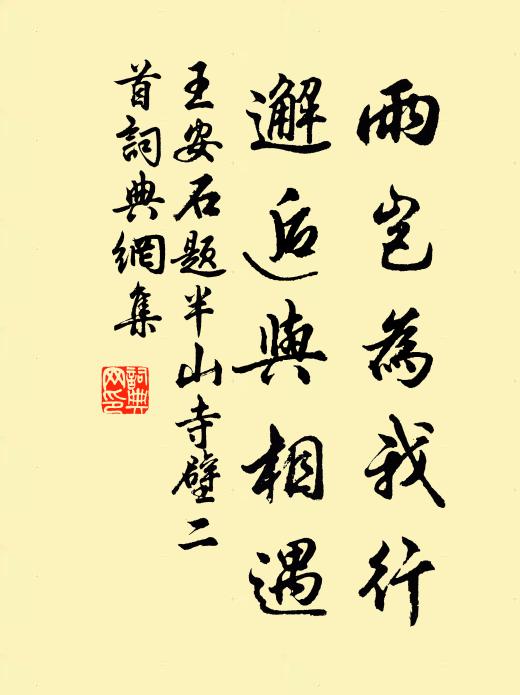 雨豈為我行
邂逅與相遇
王安石題半山寺壁二
首詞典網集
詞典
网印